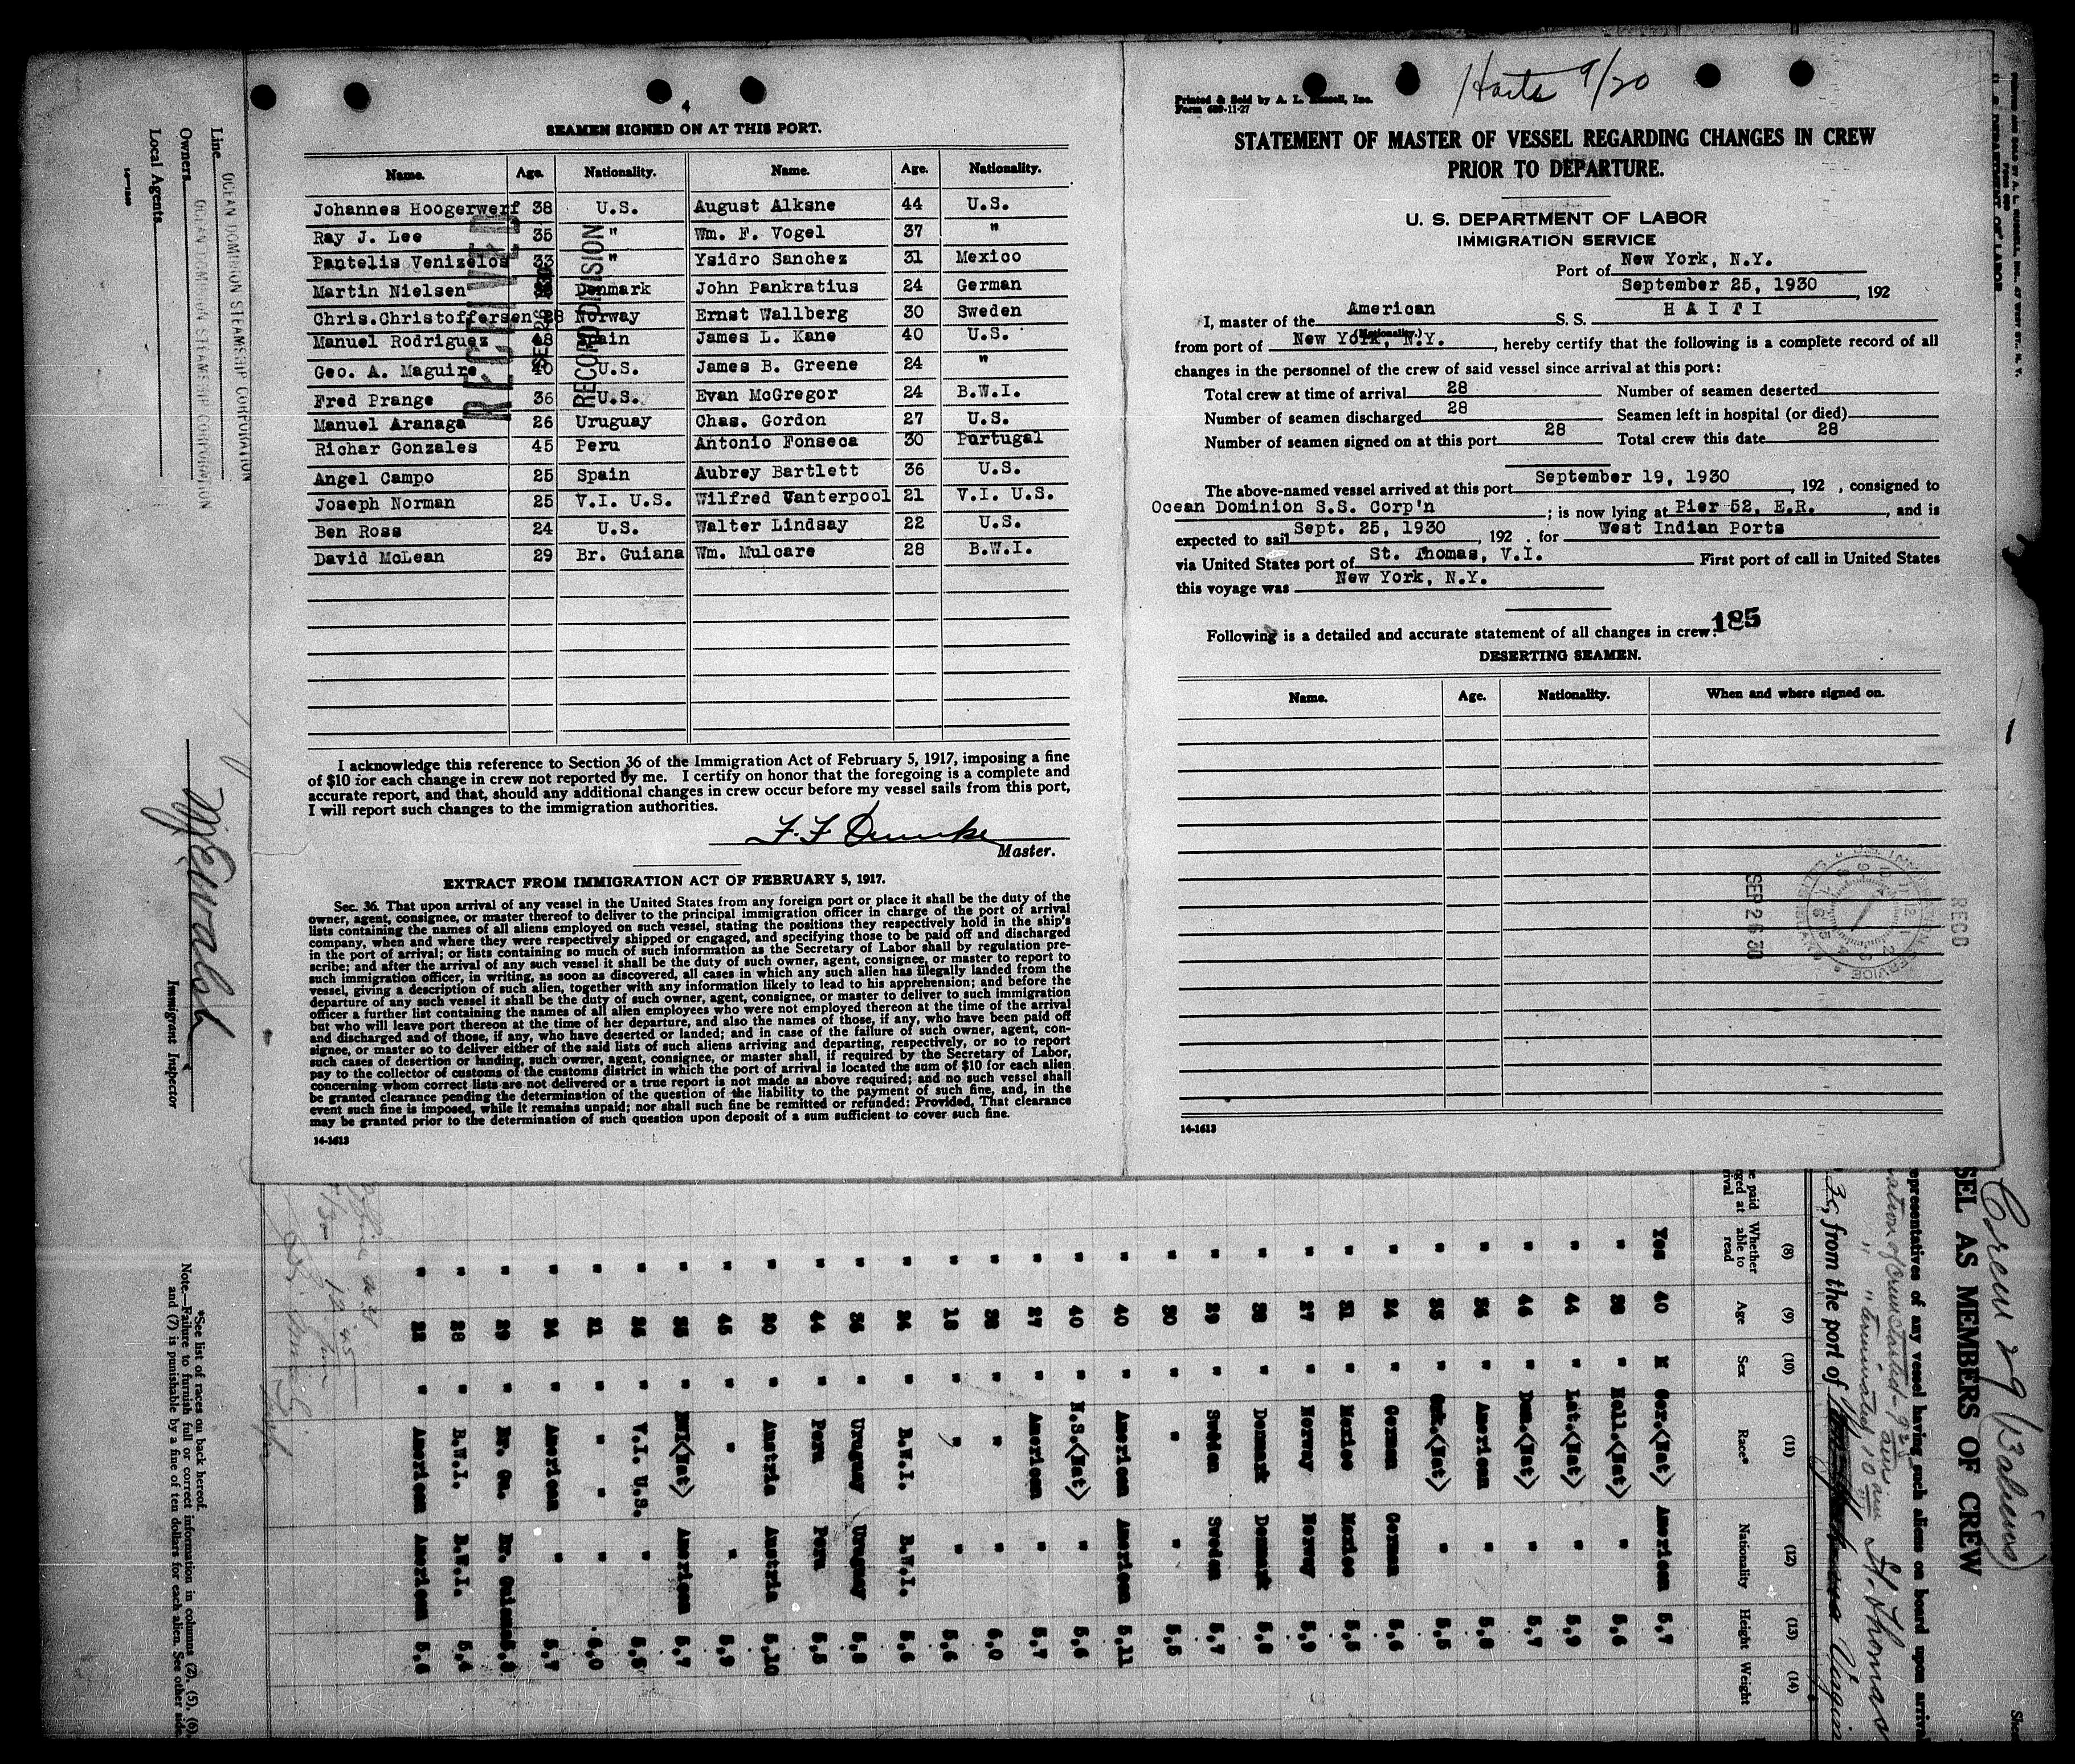 4
SEAMEN SIGNED ON AT THIS PORT.
Name. Age. Nationality. Name. Age. Nationality.
Johannes Hoogerwerf 38 U.S. August Alksne 44 U.S.
Ray J. Lee 35 " Wm. F. Vogel 37 "
Pantelis Venizelos 33 " Ysidro Sanchez 31 Mexico
Martin Nielsen Denmark John Pankratius 24 German
Chris.Christoffersen 28 Norway Ernst Wallberg 30 Sweden
Manuel Rodriguez 48 Spain James L. Kane 40 U.S.
Geo. A. Maguire 40 U.S. James B. Greene 24 "
Fred Prange 36 U.S. Evan McGregor 24 B.W.I.
Manuel Aranaga 26 Uruguay Chas. Gordon 27 U.S.
Richar Gonzales 45 Peru Antonio Fonseca 30 Portugal
Angel Campo 25 Spain Aubrey Bartlett 36 U.S.
Joseph Norman 25 V.I. U.S. Wilfred Vanterpool 21 V.I. U.S.
Ben Ross 24 U.S. Walter Lindsay 22 U.S.
David McLean 29 Br. Guiana Wm. Mulcare 28 B.W.I.
RECEIVED
RECORD DIVISION
I acknowledge this reference to Section 36 of the Immigration Act of February 5, 1917, imposing a fine
of $10 for each change in crew not reported by me. I certify on honor that the foregoing is a complete and
accurate report, and that, should any additional changes in crew occur before my vessel sails from this port,
I will report such changes to the immigration authorities.
Master.
EXTRACT FROM IMMIGRATION ACT OF FEBRUARY 5, 1917.
Sec. 36. That upon arrival of any vessel in the United States from any foreign port or place it shall be the duty of the
owner, agent, consignee, or master thereof to deliver to the principal immigration officer in charge of the port of arrival
lists containing the names of all aliens employed on such vessel, stating the positions they respectively hold in the ship's
company, when and where they were respectively shipped or engaged, and specifying those to be paid off and discharged
in the port of arrival; or lists containing so much of such information as the Secretary of Labor shall by regulation pre-
scribe; and after the arrival of any such vessel it shall be the duty of such owner, agent, consignee, or master to report to
such immigration officer, in writing, as soon as discovered, all cases in which any such alien has illegally landed from the
vessel, giving a description of such alien, together with any information likely to lead to his apprehension; and before the
departure of any such vessel it shall be the duty of such owner, agent, consignee, or master to deliver to such immigration
officer a further list containing the names of all alien employees who were not employed thereon at the time of the arrival
but who will leave port thereon at the time of her departure, and also the names of those, if any, who have been paid off
and discharged and of those, if any, who have deserted or landed; and in case of the failure of such owner, agent, con-
signee, or master so to deliver either of the said lists of such aliens arriving and departing, respectively, or so to report
such cases of desertion or landing, such owner, agent, consignee, or master shall, if required by the Secretary of Labor,
pay to the collector of customs of the customs district in which the port of arrival is located the sum of $10 for each alien
concerning whom correct lists are not delivered or a true report is not made as above required; and no such vessel shall
be granted clearance pending the determination of the question of the liability to the payment of such fine, and, in the
event such fine is imposed, while it remains unpaid; nor shall such fine be remitted or refunded: Provided, That clearance
may be granted prior to the determination of such question upon deposit of a sum sufficient to cover such fine.
14-1613
9/20
Printed & Sold by A. L. Russell, Inc.
Form 689-11-27
STATEMENT OF MASTER OF VESSEL REGARDING CHANGES IN CREW
PRIOR TO DEPARTURE.
U. S. DEPARTMENT OF LABOR
IMMIGRATION SERVICE
Port of New York, N.Y.
September 25, 1930, 192
I, master of the American S. S. HAITI
(Nationality.)
from port of New York, N.Y., hereby certify that the following is a complete record of all
changes in the personnel of the crew of said vessel since arrival at this port:
Total crew at time of arrival 28 Number of seamen deserted
Number of seamen discharged 28 Seamen left in hospital (or died)
Number of seamen signed on at this port 28 Total crew this date 28
The above-named vessel arrived at this port September 19, 1930, 192 , consigned to
Ocean Dominion S.S. Corp'n ; is now lying at Pier 52, E.R., and is
expected to sail Sept. 25, 1930, 192 . for West Indian Ports
via United States port of St. Thomas, V.I. First port of call in United States
this voyage was New York, N.Y.
Following is a detailed and accurate statement of all changes in crew:
185
DESERTING SEAMEN.
Name. Age. Nationality. When and where signed on.
RECD
SEP 26 30
14-1613
Line OCEAN DOMINION STEAMSHIP CORPORATION
Owners OCEAN DOMINION STEAMSHIP CORPORATION
Local Agents
Immigrant Inspector
*See list of races on back hereof.
Note.—Failure to furnish full or correct information in columns (2), (5), (6),
and (7) is punishable by a fine of ten dollars for each alien. See other side.
Crew 29 (13 aliens)
SEL AS MEMBERS OF CREW
epresentatives of any vessel having such aliens on board upon arrival
St. Thomas
, from the port of
(8) (9) (10) (11) (12) (13) (14)
Whether able to read Age Sex Race* Nationality Height Weight
Yes 40 M Ger.(Nat) American 5,7
" 38 " Holl.(Nat) " 5,6
" 44 " Lat.(Nat) " 5,9
" 46 " Den.(Nat) " 5,7
" American " 5,8
" (Nat) " 5,5
" 24 " German German 5,6
" 31 " Mexico Mexico 5,5
" 27 " Norway Norway 5,9
" " Denmark Denmark 5,8
" 29 " Sweden Sweden 5,7
" 30 " " " 5,5
" 40 " American American 5,11
" 40 " N.S.(Nat) " 5,6
" 27 " American " 5,7
" " " " 6,0
" 18 " " " 5,6
" 24 " B.W.I. B.W.I. 5,6
" " Uruguay Uruguay 5,8
" 44 " Peru Peru 5,5
" " Austria Austria 5,10
" 45 " " " 5,9
" " (Nat) American 5,7
" " V.I. U.S. " 5,8
" 21 " " " 6,0
" 24 " American " 5,7
" 29 " Br. Gu. Br. Guiana
" 28 " B.W.I. B.W.I. 5,4
" 22 " American American 5,6